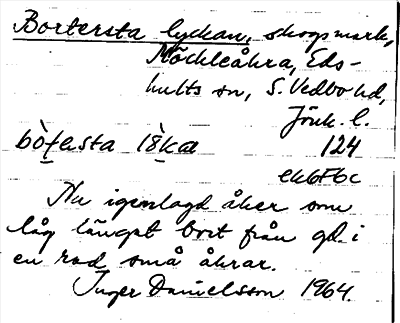 Bortersta lyckan, skogsmark,
Möckleåkra, Eds-
hults sn, S. Vedbo hd,
Jönk. l.
124
Nu igenlagd åker som
låg längst bort från gd. i
en rad små åkrar.
Inger Danielsson 1964.